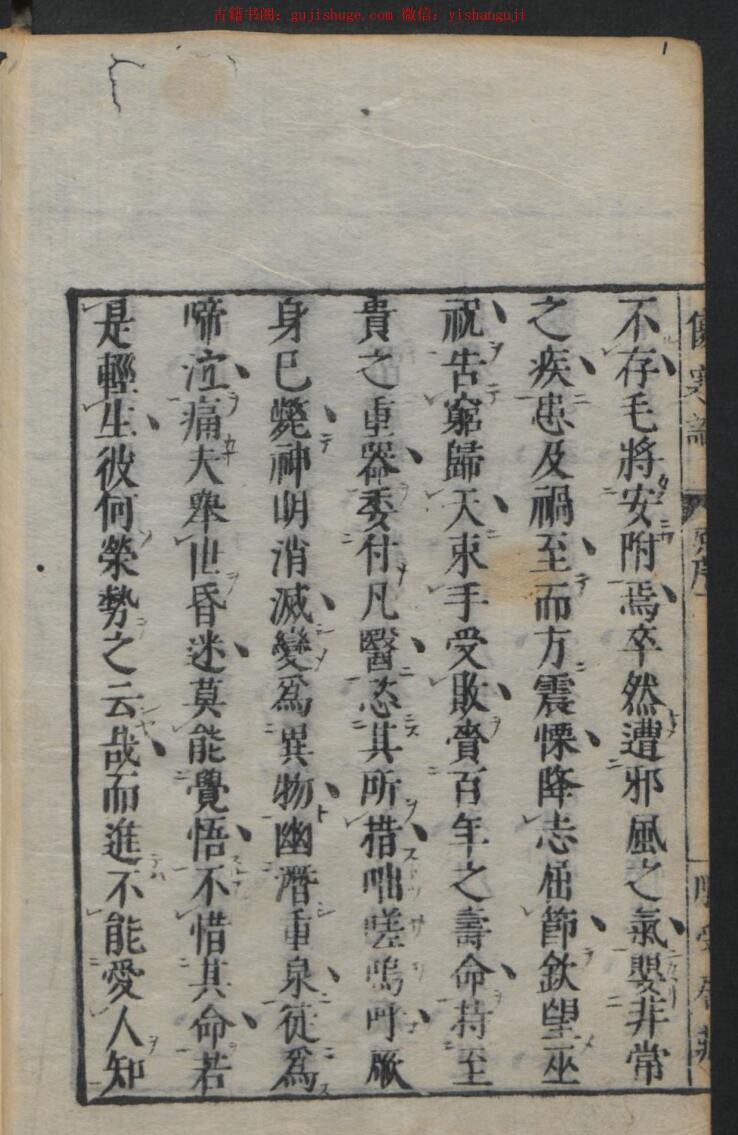 古籍书阁：gujishuge.com 微信：yishanguji
1
傷寒論 序
不存毛將安附焉卒然遭邪風之氣嬰非常
之疾患及禍至而方震慄降志屈節欽望巫
祝告窮歸天束手受敗賷百年之壽命持至
貴之重器委付凡醫恣其所措咄嗟嗚呼厥
身已斃神明消滅變爲異物幽潛重泉徒爲
啼泣痛夫舉世昏迷莫能覺悟不惜其命若
是輕生彼何榮勢之云哉而進不能愛人知